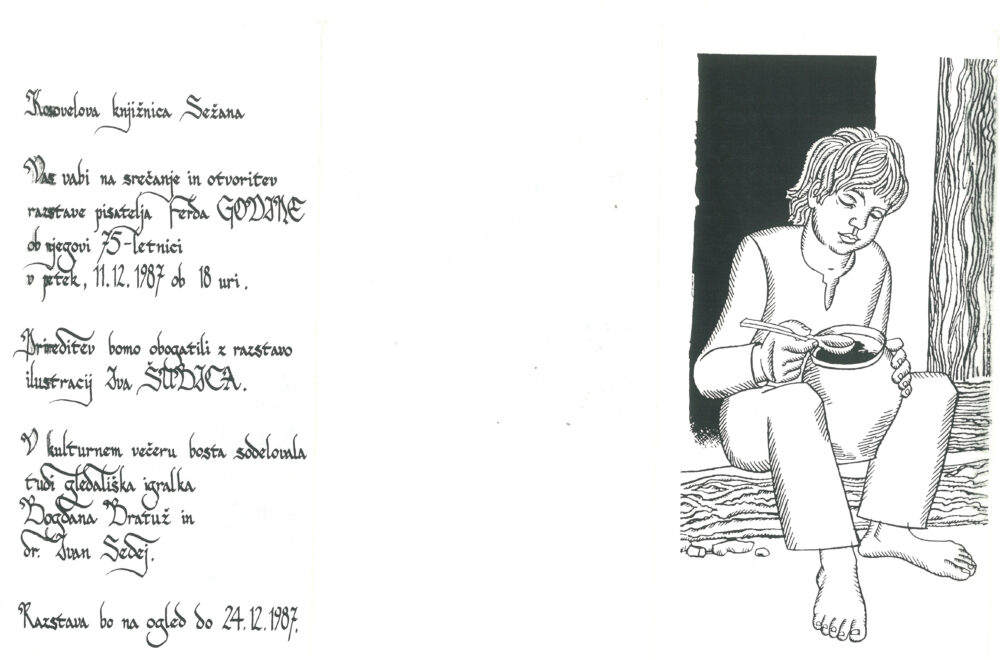 Kosovelova knjižnica Sežana
Vas vabi na srečanje in otvoritev
razstave pisatelja Ferda GODINE
ob njegovi 75-letnici
v petek, 11.12.1987 ob 18 uri.
Prireditev bomo obogatili z razstavo
ilustracij Iva ŠUBICA.
V kulturnem večeru bosta sodelovala
tudi gledališka igralka
Bogdana Bratuž in
dr. Ivan Sedej.
Razstava bo na ogled do 24.12.1987.